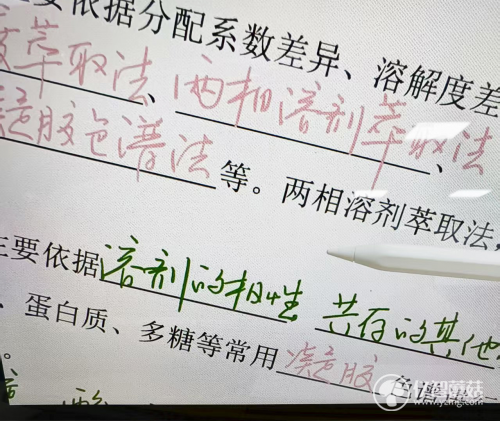 要依据分配系数差异、溶解度差
萃取法、两相溶剂萃取法、
凝胶色谱法等。两相溶剂萃取法,
主要依据溶剂的极性 共存的其他
、蛋白质、多糖等常用凝胶色谱
。
优智蘑菇